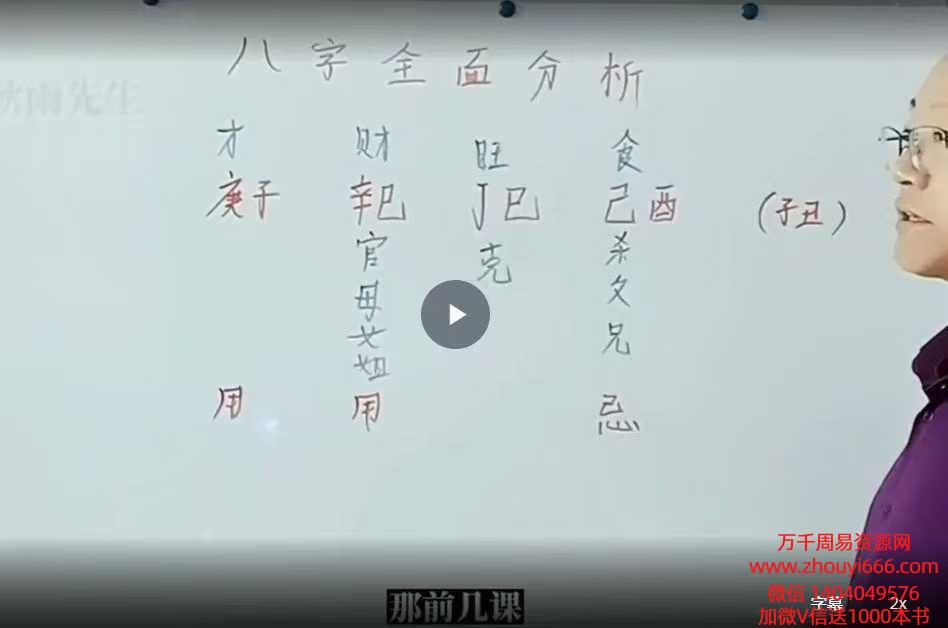 八字全面分析
秋雨先生
才 财 旺 食
庚子 辛巳 丁巳 己酉 (子丑)
官 克 杀
母 父
女 兄
姐
用 用 忌
那前几课
万千周易资源网
www.zhouyi666.com
微信 1404049576
字幕 2x
加微V信送1000本书